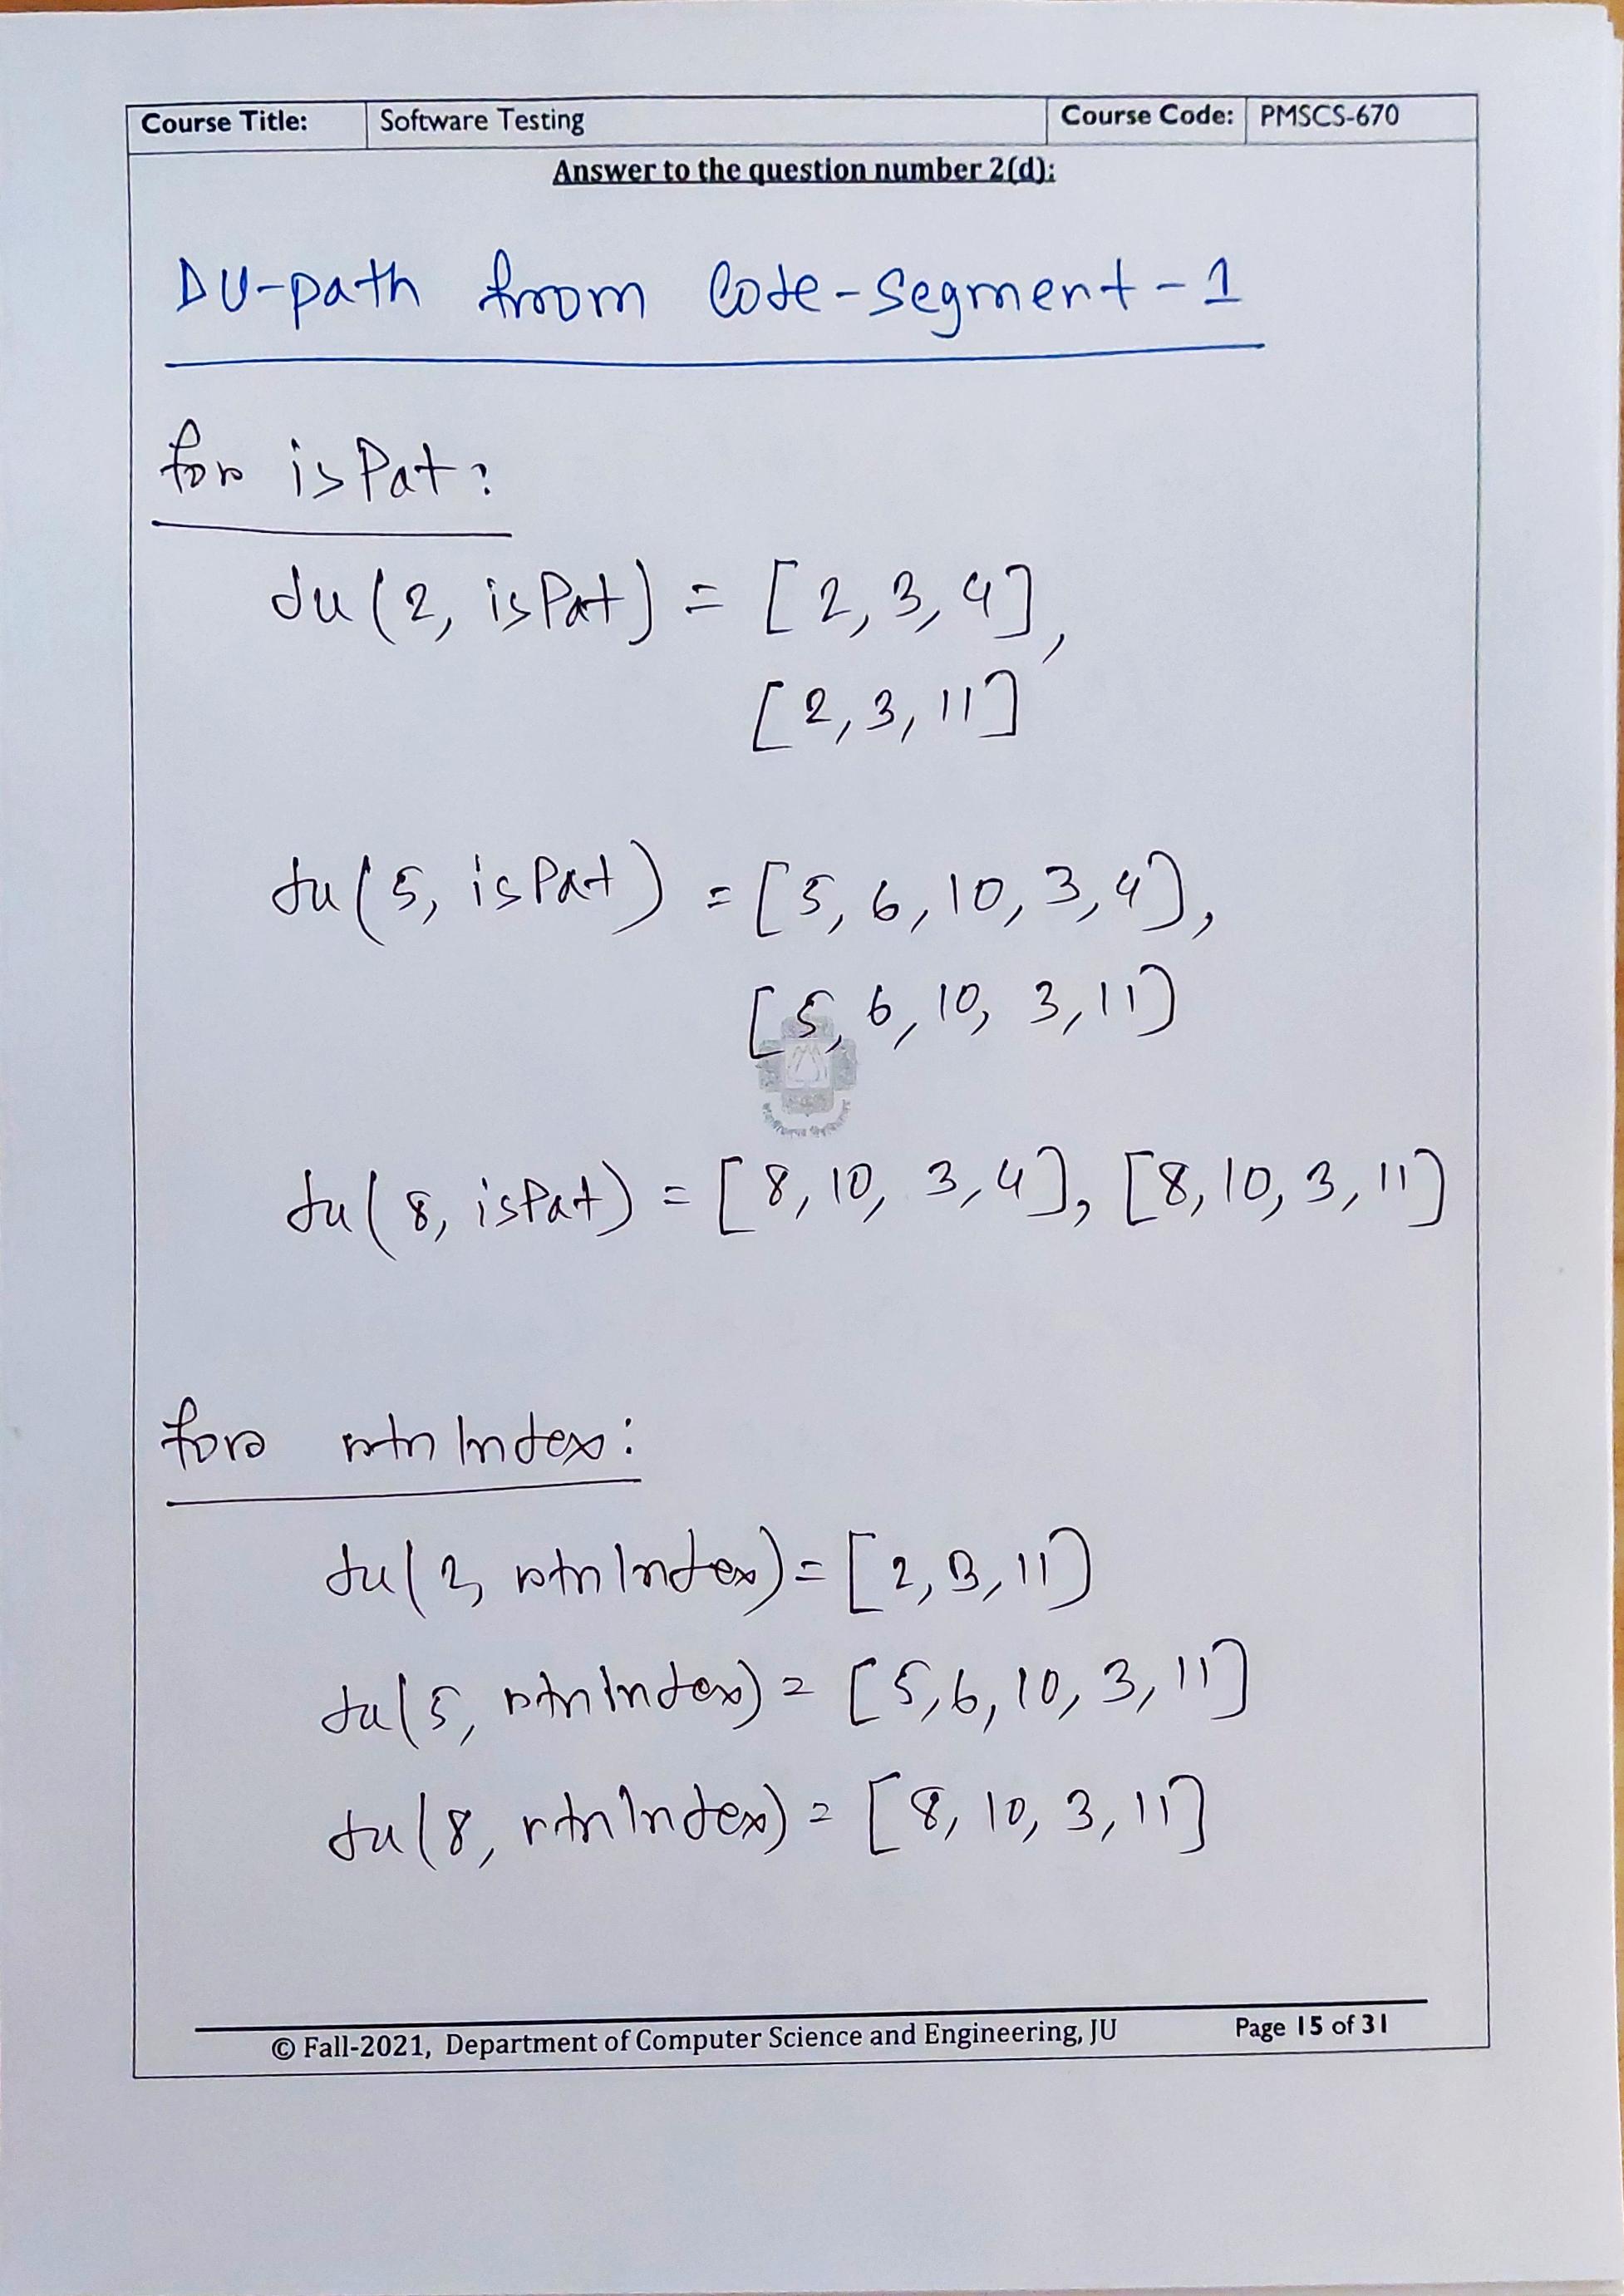 Course Title: Software Testing Course Code: PMSCS-670
Answer to the question number 2(d):
DU-path from Code-Segment-1
for isPat:
du(2, isPat) = [2, 3, 4],
[2, 3, 11]
du(5, isPat) = [5, 6, 10, 3, 4],
[5, 6, 10, 3, 11]
du(8, isPat) = [8, 10, 3, 4], [8, 10, 3, 11]
for rtnIndex:
du(2, rtnIndex) = [2, 3, 11]
du(5, rtnIndex) = [5, 6, 10, 3, 11]
du(8, rtnIndex) = [8, 10, 3, 11]
© Fall-2021, Department of Computer Science and Engineering, JU Page 15 of 31